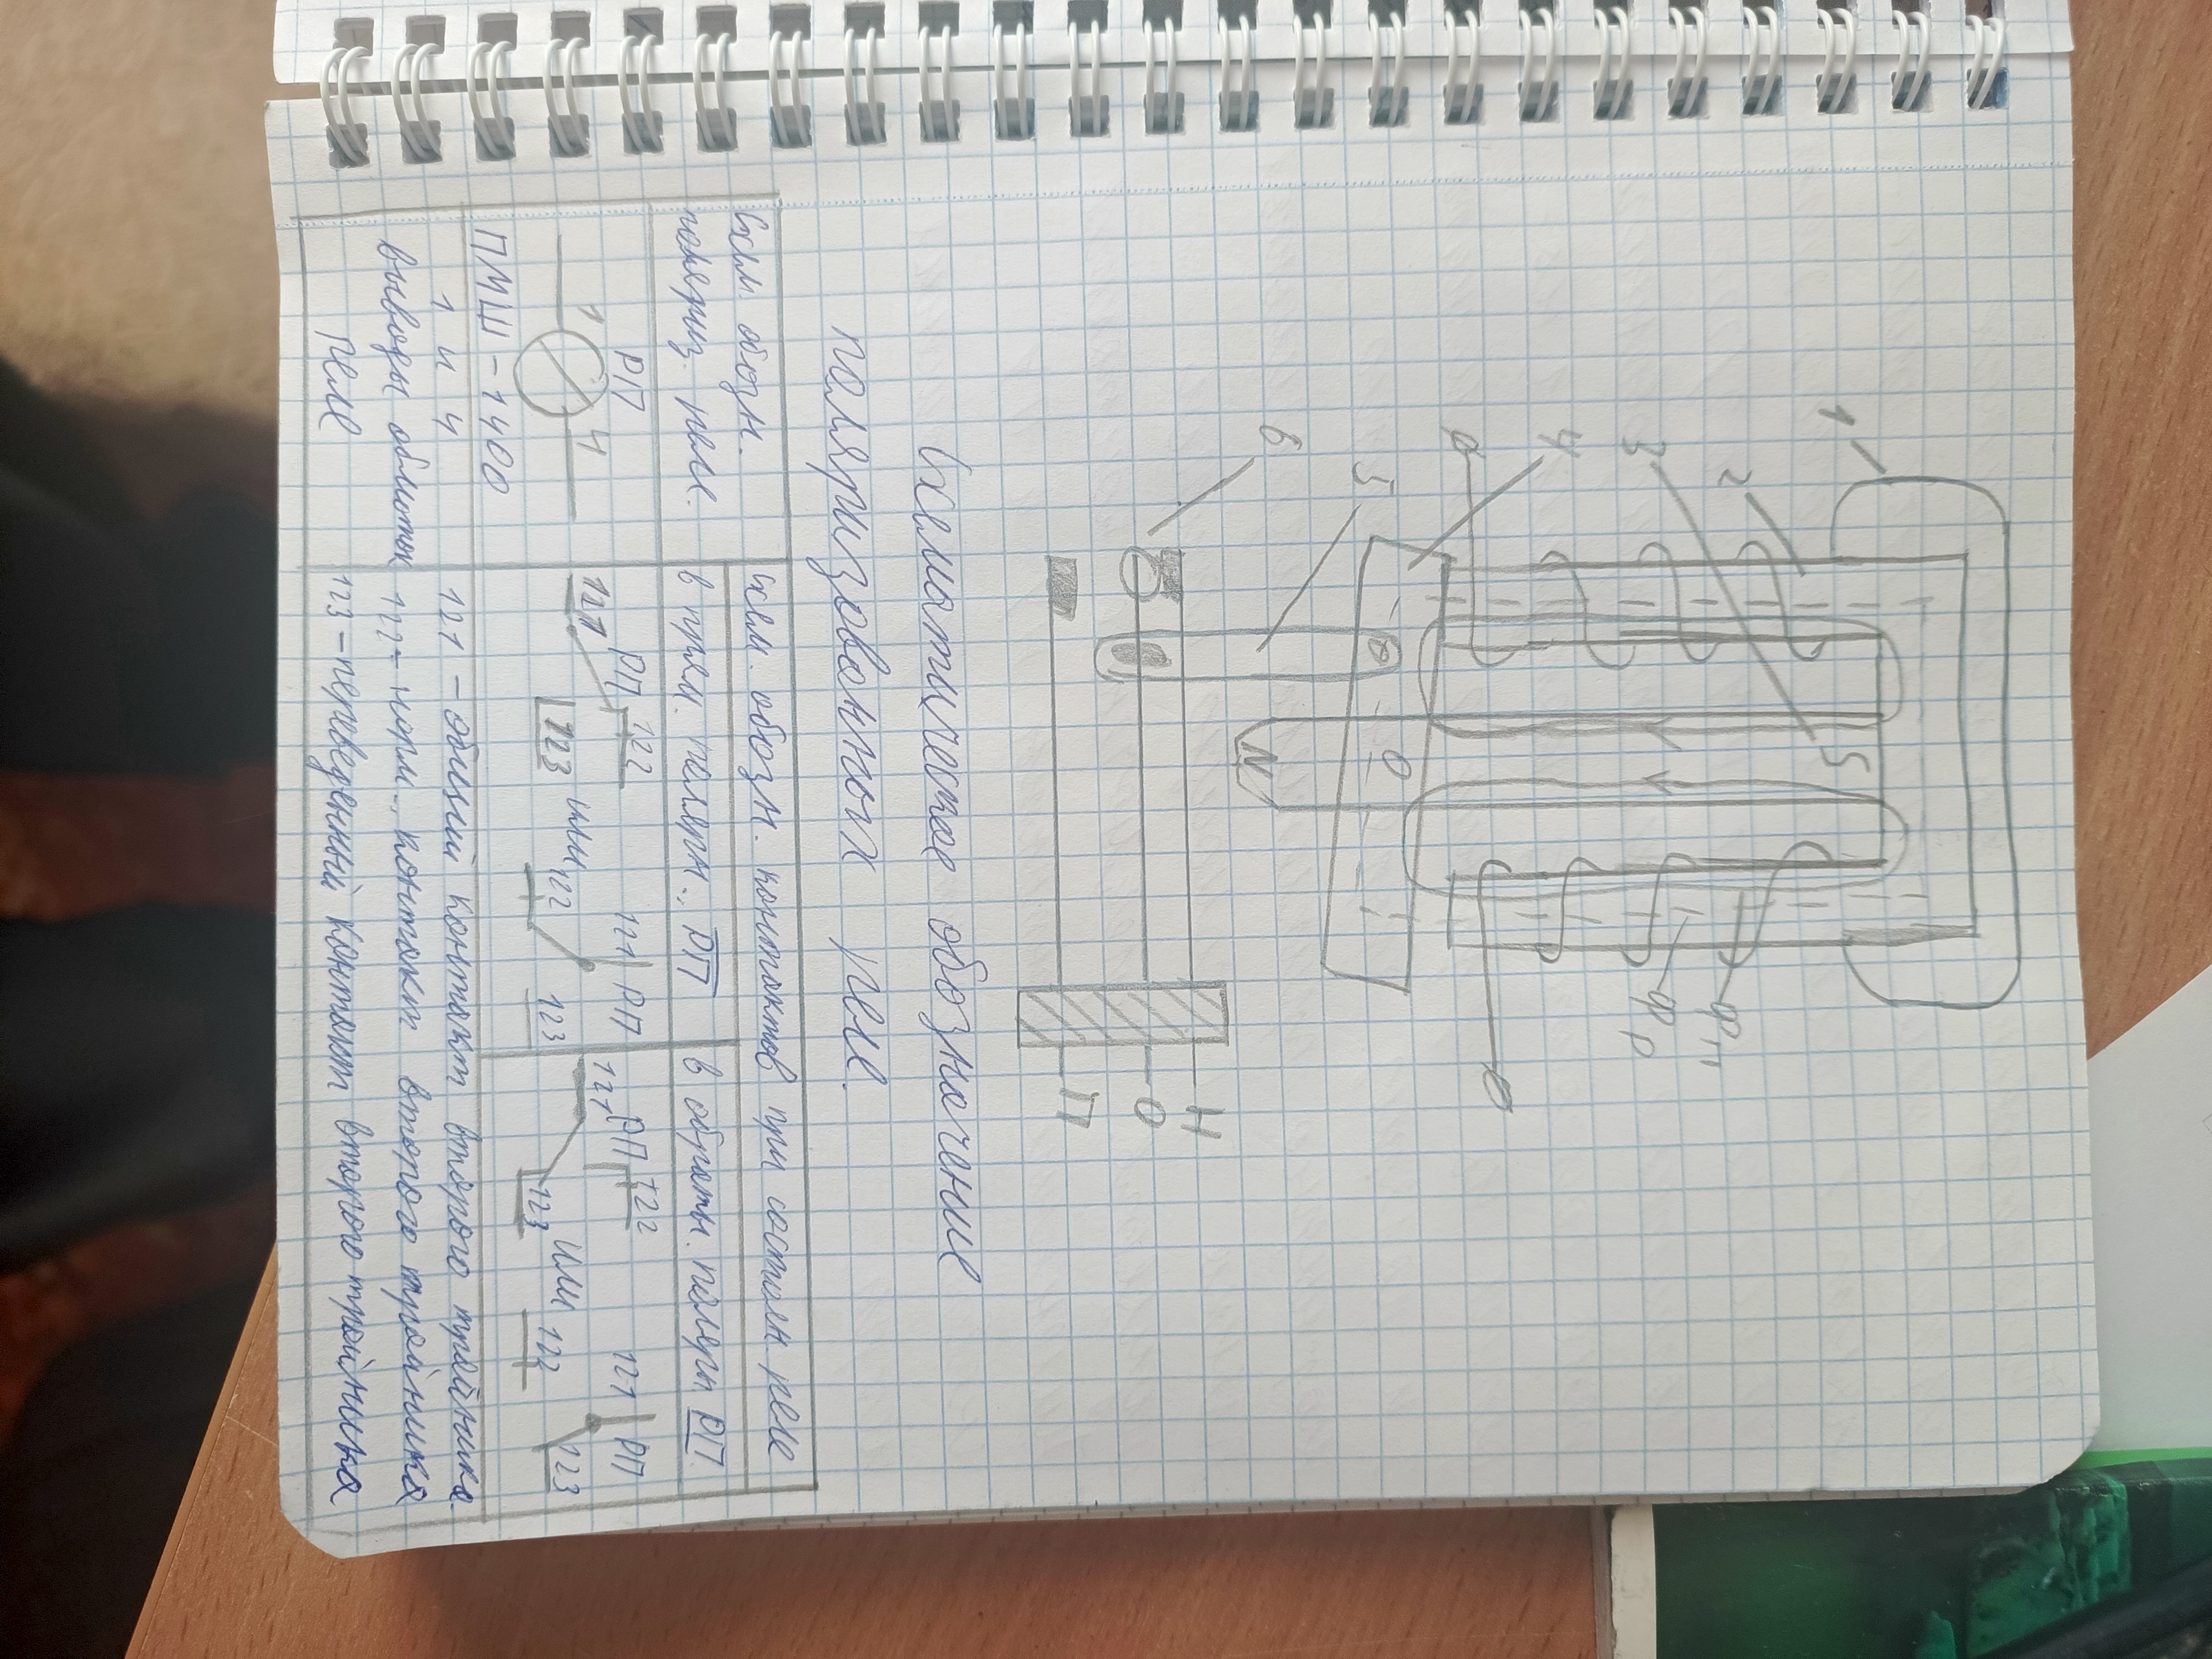 1
2
3
4
5
6
S
N
0
0
Фп
Фр
Н
О
П
Схематическое обозначение
поляризованных реле.
Схем. обозн.
поляриз. реле.
Схем. обозн. контактов при состоян. реле
в прям. полярн., РП
в обратн. полярн РП
РП
1
4
121 РП 122
123
или
121 РП
122
123
121 РП 122
123
или
121 РП
122
123
ПМШ-1400
1 и 4
выводы обмоток
реле
121 - общий контакт второго тройника.
122 - норм., контакт второго тройника
123 - переведенный контакт второго тройника